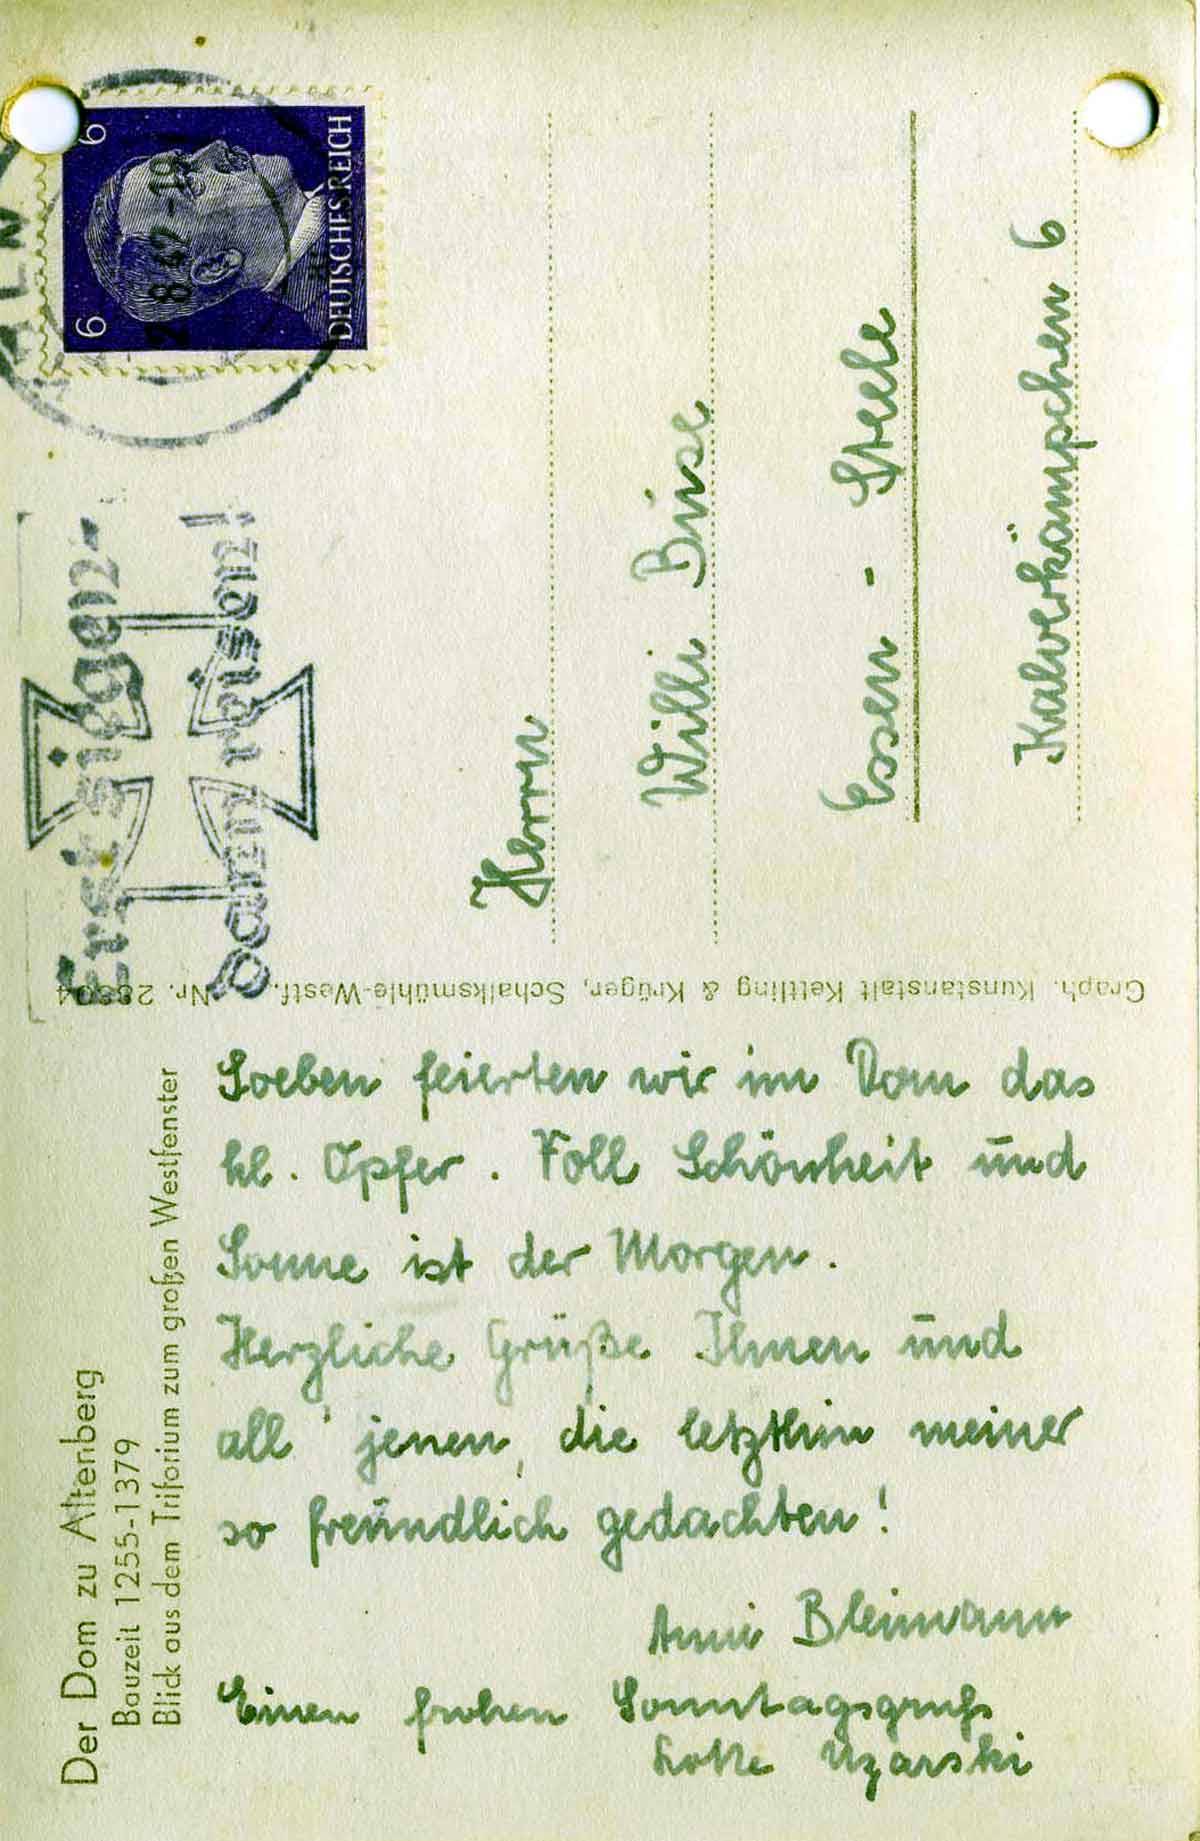 Der Dom zu Altenberg
Bauzeit 1255-1379
Blick aus dem Triforium zum großen Westfenster
Soeben feierten wir im Dom das
hl. Opfer. Voll Schönheit und
Sonne ist der Morgen.
Herzliche Grüße Ihnen und
all' jenen, die letzthin meiner
so freundlich gedachten!
Anni Bleimann
Einen frohen Sonntagsgruß
Lotte Uzarski
Graph. Kunstanstalt Kettling & Krüger, Schalksmühle-Westf. Nr.
Erst siegen-
Dann reisen!
6 6
DEUTSCHES REICH
8 42 -19
Herrn
Willi
Essen - Steele
Kalverkämpchen 6